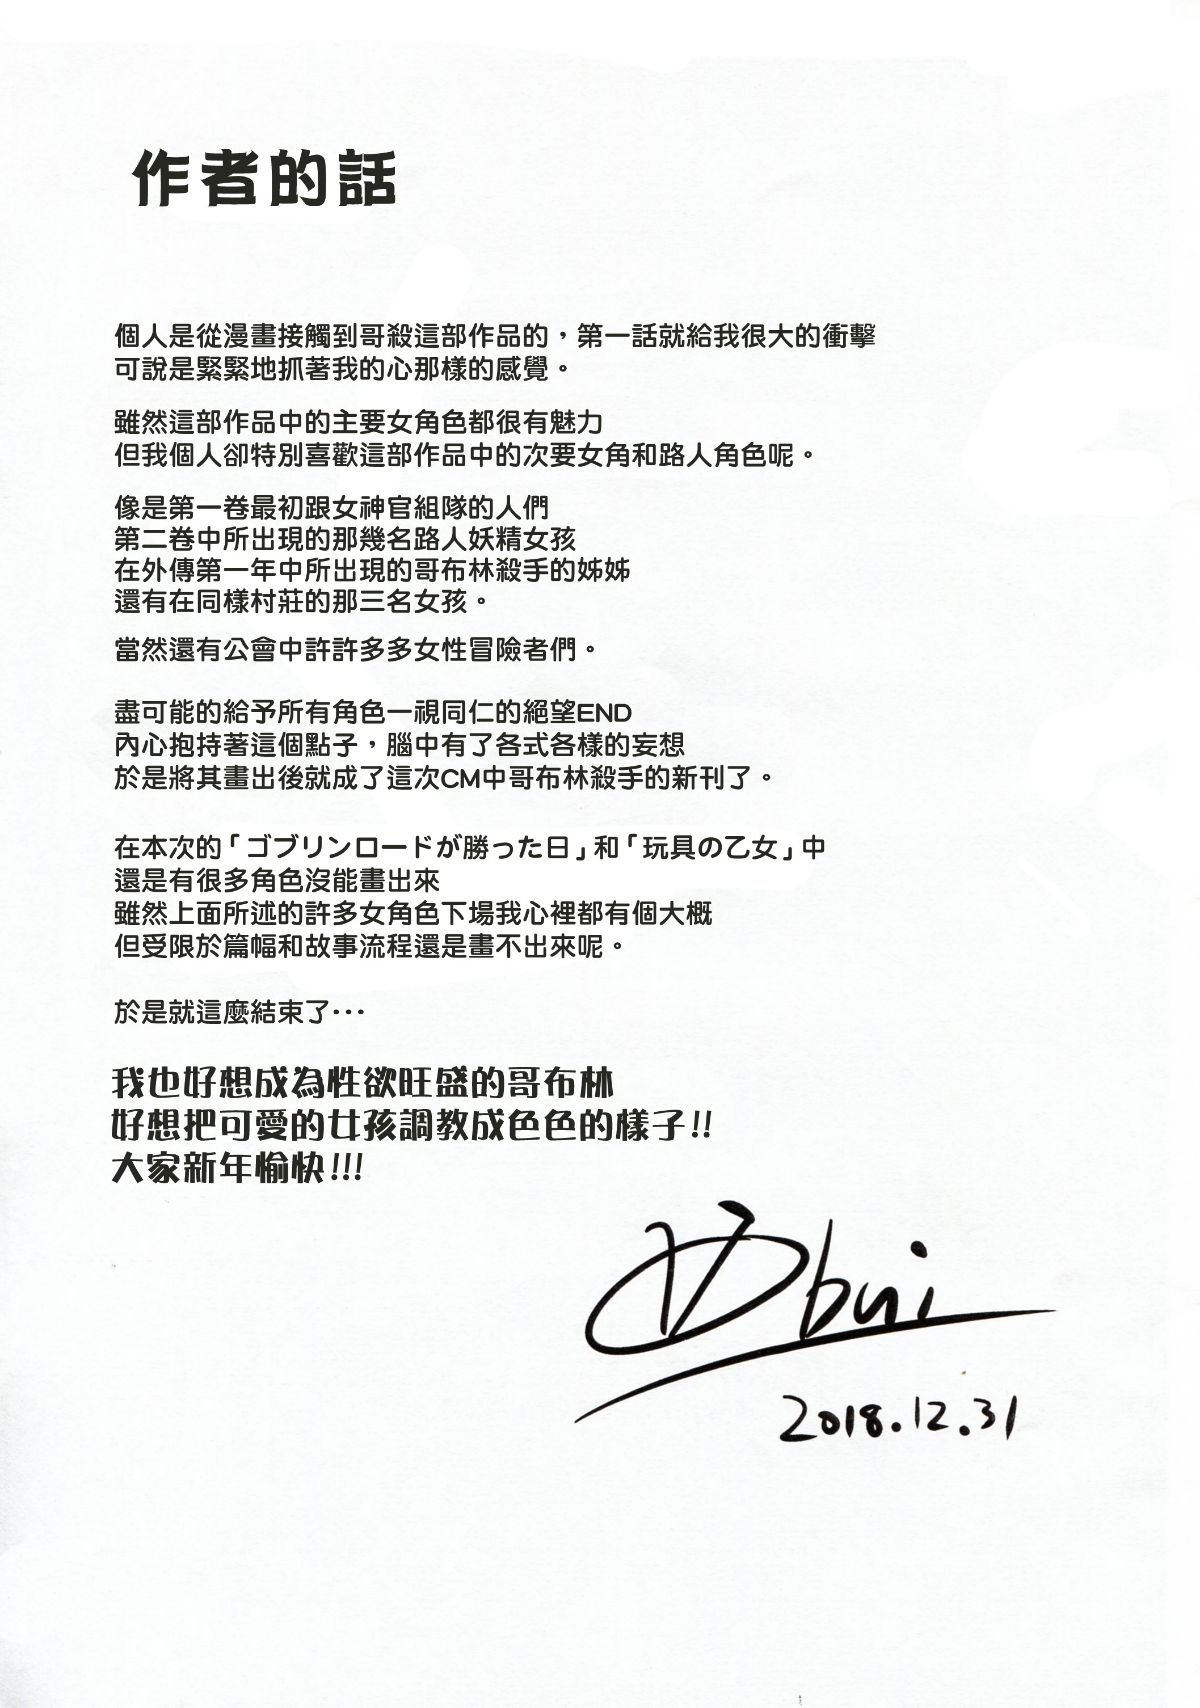 作者的話
個人是從漫畫接觸到哥殺這部作品的，第一話就給我很大的衝擊
可說是緊緊地抓著我的心那樣的感覺。
雖然這部作品中的主要女角色都很有魅力
但我個人卻特別喜歡這部作品中的次要女角和路人角色呢。
像是第一卷最初跟女神官組隊的人們
第二卷中所出現的那幾名路人妖精女孩
在外傳第一年中所出現的哥布林殺手的姊姊
還有在同樣村莊的那三名女孩。
當然還有公會中許許多多女性冒險者們。
盡可能的給予所有角色一視同仁的絕望END
內心抱持著這個點子，腦中有了各式各樣的妄想
於是將其畫出後就成了這次CM中哥布林殺手的新刊了。
在本次的「ゴブリンロードが勝った日」和「玩具の乙女」中
還是有很多角色沒能畫出來
雖然上面所述的許多女角色下場我心裡都有個大概
但受限於篇幅和故事流程還是畫不出來呢。
於是就這麼結束了···
我也好想成為性欲旺盛的哥布林
好想把可愛的女孩調教成色色的樣子!!
大家新年愉快!!!
bui
2018.12.31